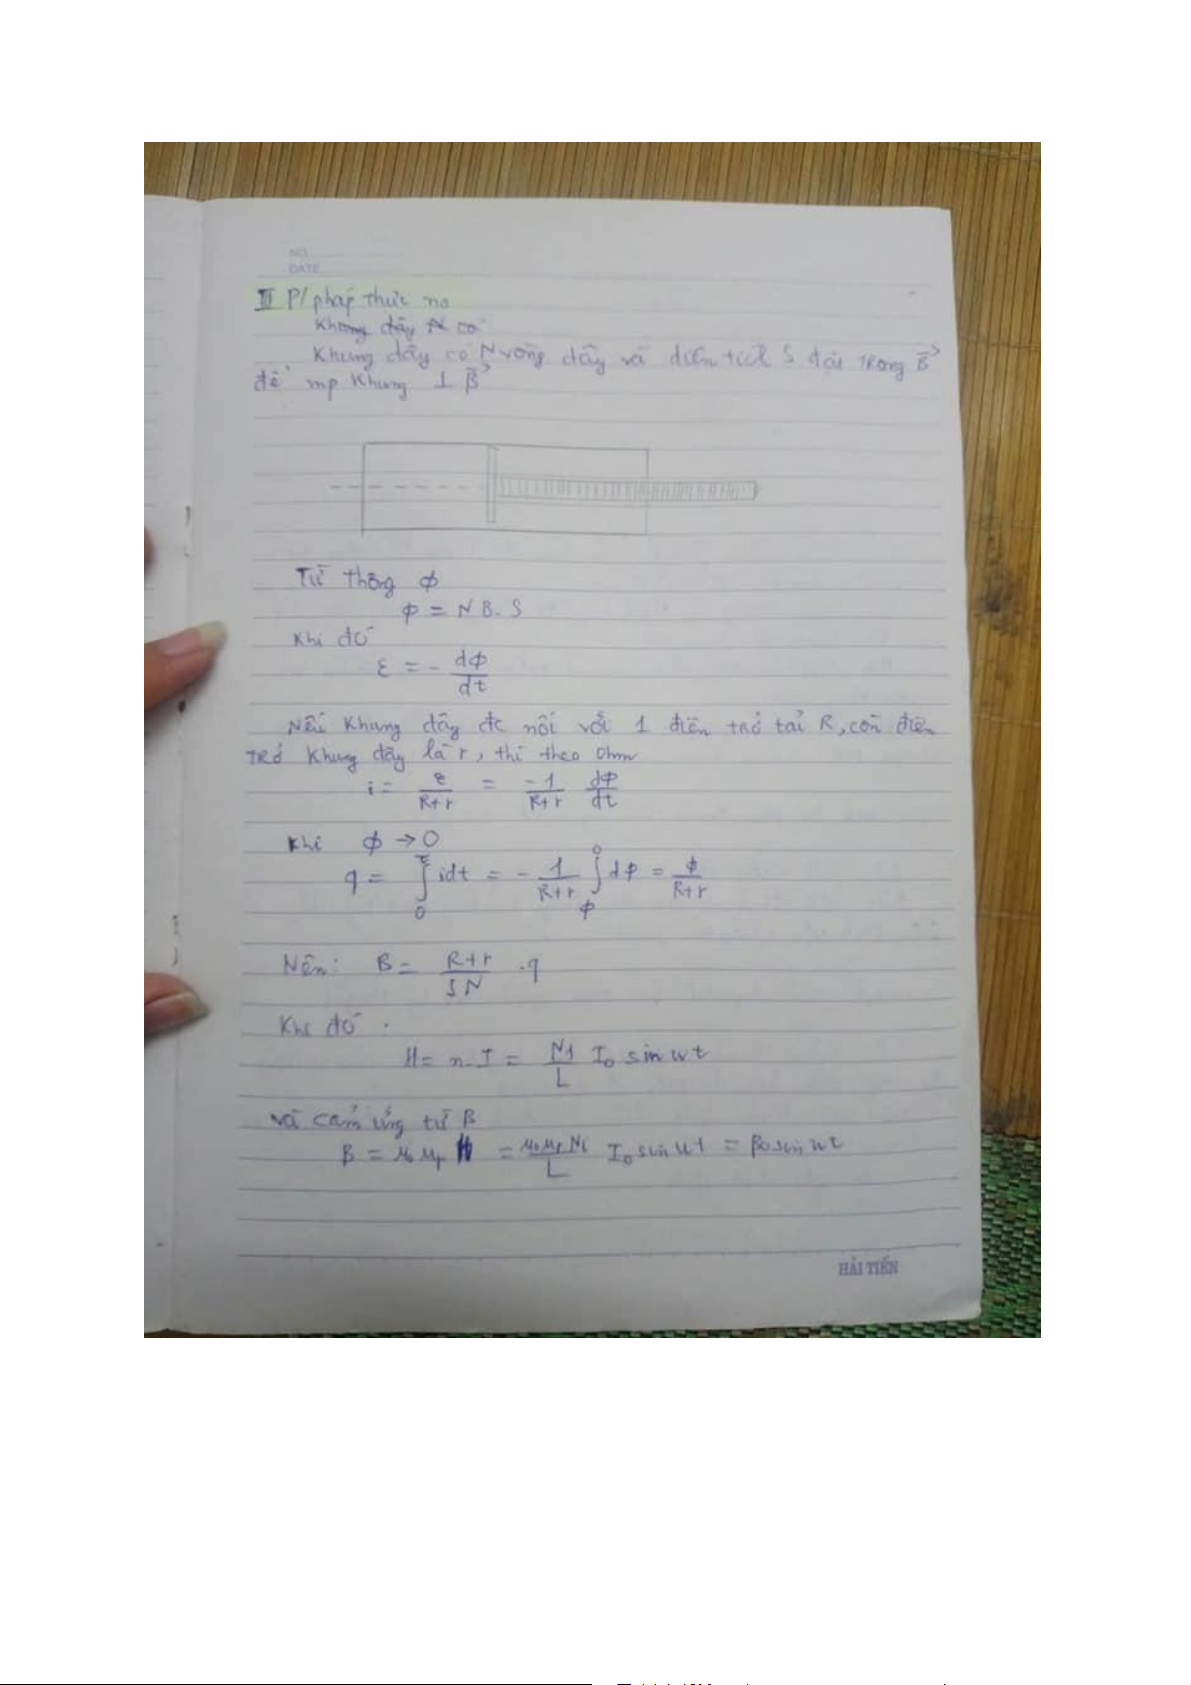 NO
DATE
III P/pháp thực no
Không dây N có
Khung dây có N vòng dây và diện tích S đặt trong B⃗
để mp khung ⊥ B⃗
Từ thông ϕ
ϕ = N B. S
Khi đó
ε = - dϕ/dt
Nếu khung dây đc nối với 1 điện trở tải R, còn điện
trở khung dây là r, thì theo ohm
i = ε/(R+r) = -1/(R+r) dϕ/dt
Khi ϕ → 0
q = ∫₀^τ idt = - 1/(R+r) ∫_ϕ^0 dϕ = ϕ/(R+r)
Nên: B = (R+r)/(SN) .q
Khi đó .
H = n.I = N1/L I₀ sin wt
và cảm ứng từ B
B = μ₀ μr H = μ₀μr N1/L I₀ sin wt = B₀ sin wt
HẢI TIẾN